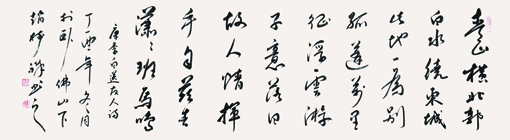 青山横北郭
白水绕东城
此地一为别
孤蓬万里
征浮云游
子意落日
故人情挥
手自兹去
萧萧班马鸣
唐李白送友人诗
丁酉年冬月
於卧佛山下
书之